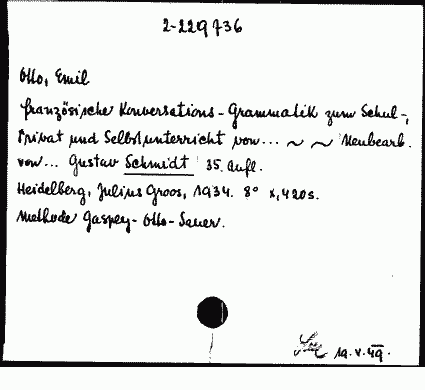 2-229736
Otto, Emil
französische Konversations-Grammatik zum Schul-,
Privat und Selbstunterricht von... ~ ~ Neubearb.
von... Gustav Schmidt 35. Aufl.
Heidelberg, Julius Groos, 1934. 8° X, 420 s.
Methode Gaspey-Otto-Sauer.
19.V.49.